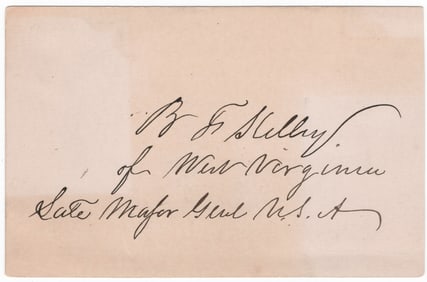 B F Kelley
of West Virginia
Late Major Genl U.S.A